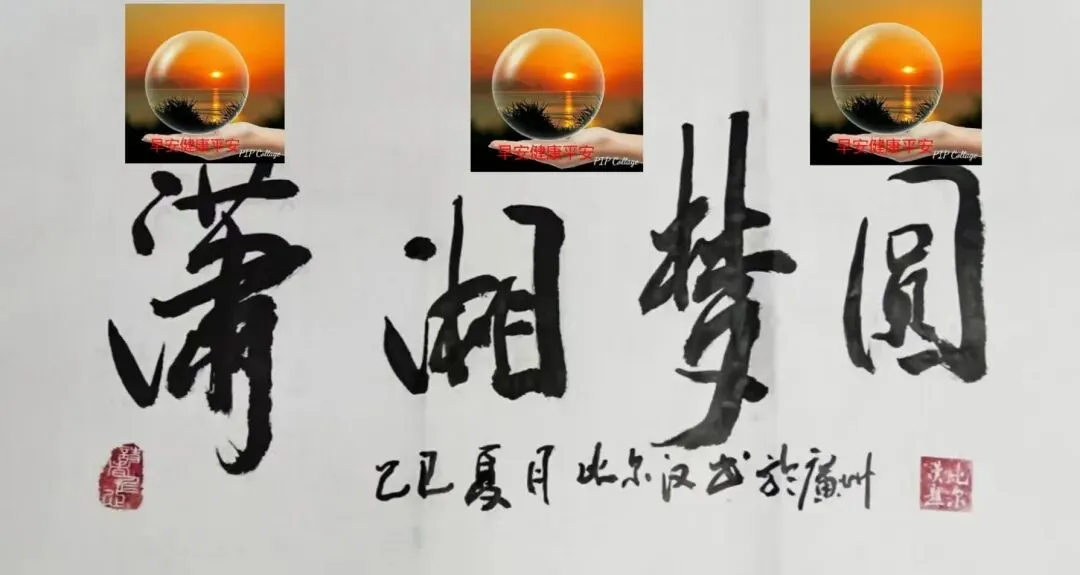 早安健康平安
PIP Collage
早安健康平安
PIP Collage
早安健康平安
PIP Collage
潇湘梦圆
乙巳夏月比尔汉书於廣州
比尔